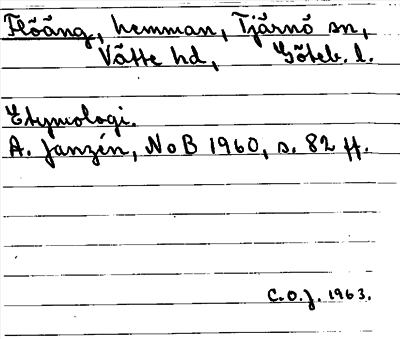 Flöäng, hemman, Tjärnö sn,
Vätte hd, Göteb. l.
Etymologi.
A. Janzén, NoB 1960, s. 82 ff.
C.O.J. 1963.